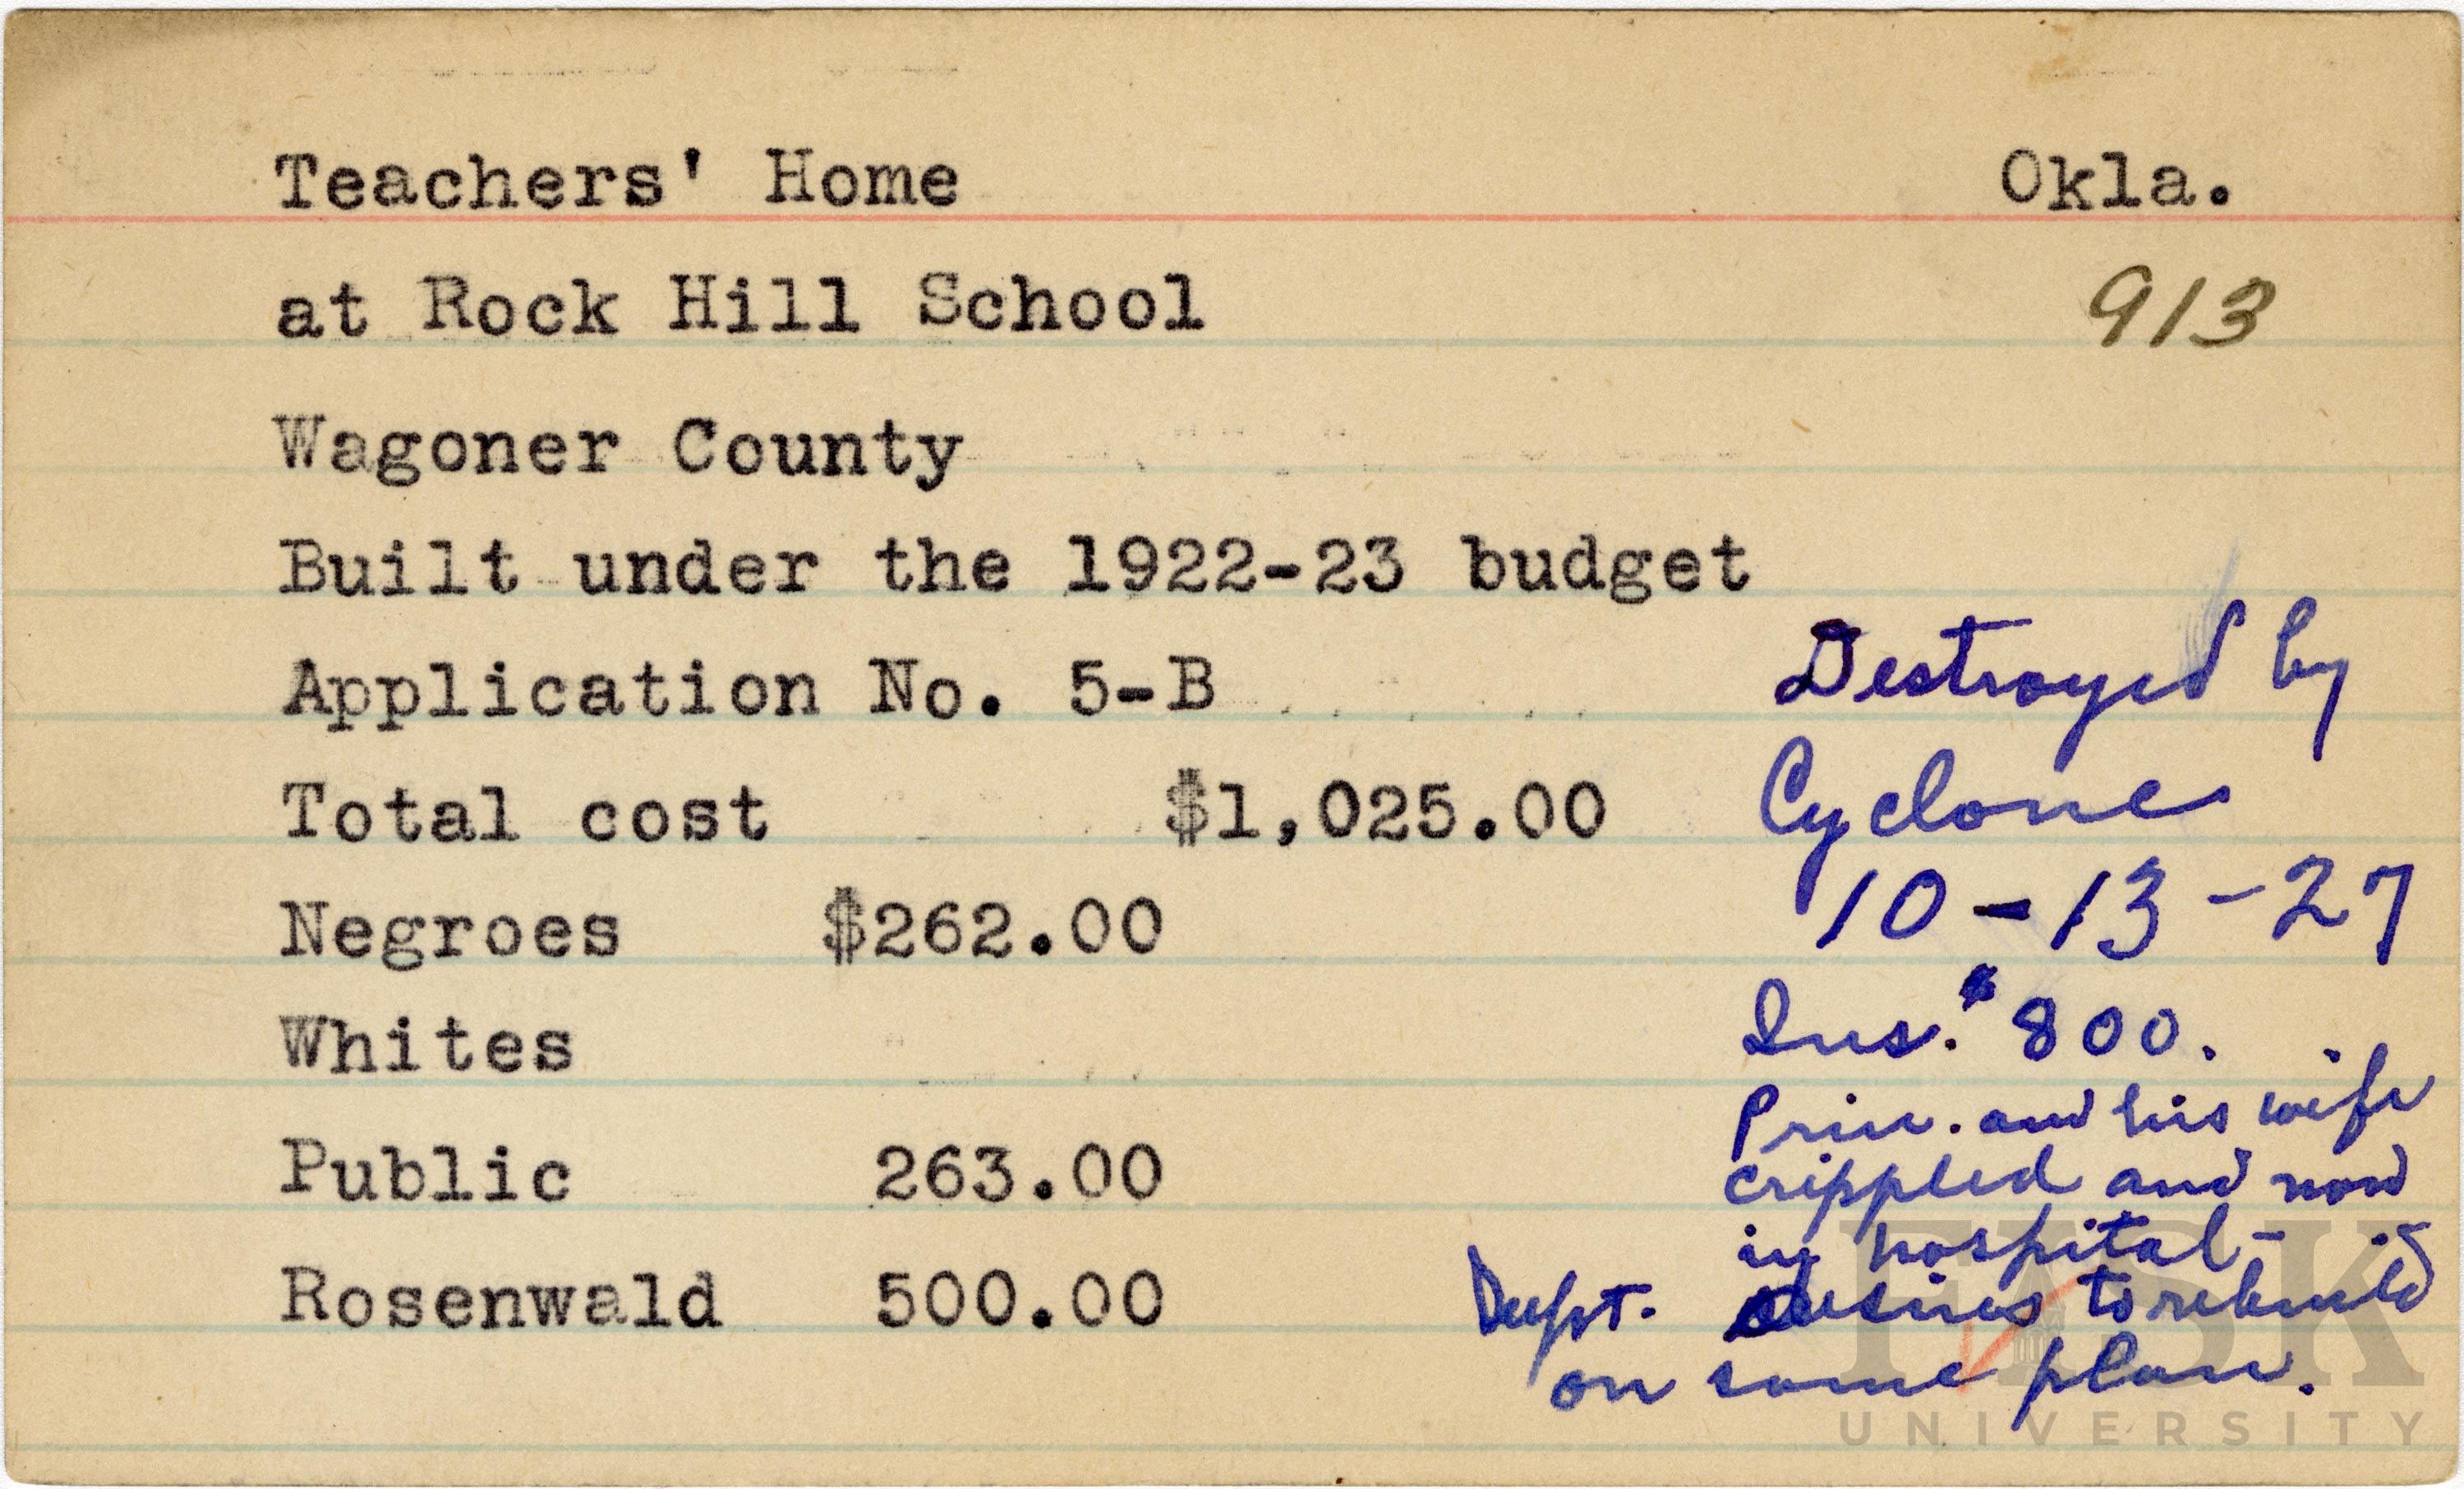 Teachers' Home Okla.
at Rock Hill School 913
Wagoner County
Built under the 1922-23 budget
Application No. 5-B
Destroyed by
Total cost $1,025.00
Cyclone
Negroes $262.00
10-13-27
Whites
Ins. $800.
Prin. and his wife
Public 263.00
crippled and now
in hospital-
Rosenwald 500.00
Dept. desires to rebuild
on same plan.
FISK
UNIVERSITY